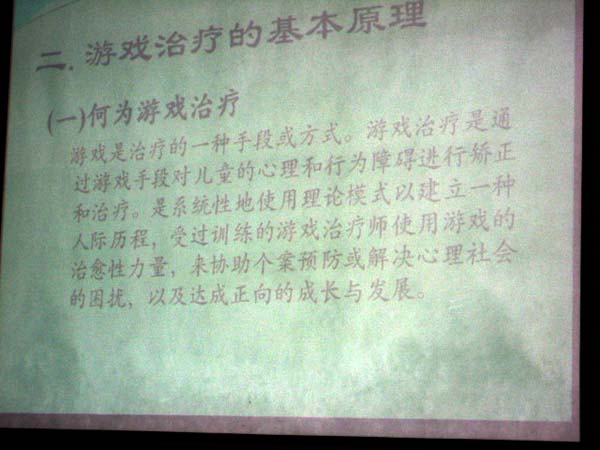 二.游戏治疗的基本原理
(一)何为游戏治疗
游戏是治疗的一种手段或方式。游戏治疗是通
过游戏手段对儿童的心理和行为障碍进行矫正
和治疗。是系统性地使用理论模式以建立一种
人际历程，受过训练的游戏治疗师使用游戏的
治愈性力量，来协助个案预防或解决心理社会
的困扰，以及达成正向的成长与发展。